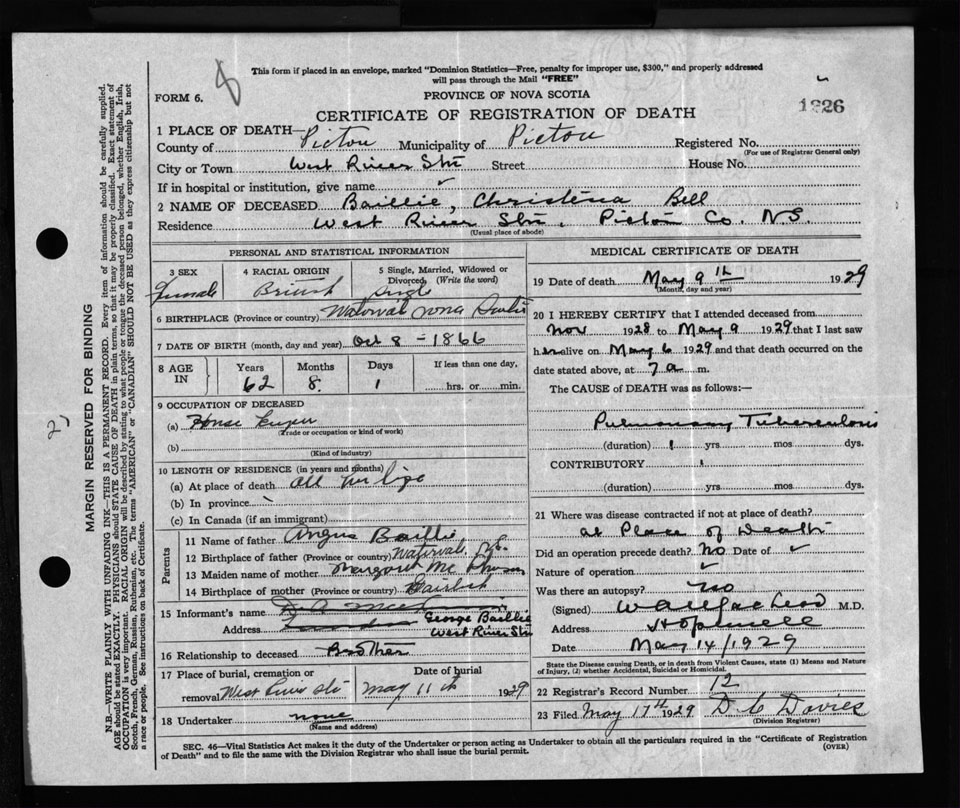 This form if placed in an envelope, marked "Dominion Statistics—Free, penalty for improper use, $300," and properly addressed
will pass through the Mail "FREE"
FORM 6.
PROVINCE OF NOVA SCOTIA
1226
CERTIFICATE OF REGISTRATION OF DEATH
1 PLACE OF DEATH—
County of Pictou Municipality of Pictou Registered No.
(For use of Registrar General only)
City or Town West River Stn Street House No.
If in hospital or institution, give name
2 NAME OF DECEASED Baillie, Christena Bell
Residence West River Stn, Pictou Co. N.S.
(Usual place of abode)
PERSONAL AND STATISTICAL INFORMATION
3 SEX 4 RACIAL ORIGIN 5 Single, Married, Widowed or Divorced, (Write the word)
Female British Single
6 BIRTHPLACE (Province or country) Nova Scotia
7 DATE OF BIRTH (month, day and year) Oct 8 - 1866
8 AGE IN Years Months Days If less than one day,
62 8. 1 hrs. or min.
9 OCCUPATION OF DECEASED
(a) House Keeper
(Trade or occupation or kind of work)
(b)
(Kind of industry)
10 LENGTH OF RESIDENCE (in years and months)
(a) At place of death all her life
(b) In province
(c) In Canada (if an immigrant)
Parents
11 Name of father Angus Baillie
12 Birthplace of father (Province or country) N.S.
13 Maiden name of mother Margaret
14 Birthplace of mother (Province or country)
15 Informant's name
Address George Baillie
West River Stn
16 Relationship to deceased Brother
17 Place of burial, cremation or Date of burial
removal West River Stn May 11th 1929
18 Undertaker none
(Name and address)
MEDICAL CERTIFICATE OF DEATH
19 Date of death May 9th 1929
(Month, day and year)
20 I HEREBY CERTIFY that I attended deceased from
Nov 1928 to May 9 1929 that I last saw
her alive on May 6 1929 and that death occurred on the
date stated above, at 7 a m.
The CAUSE of DEATH was as follows:—
Pulmonary Tuberculosis
(duration) 1 yrs. mos. dys.
CONTRIBUTORY
(duration) yrs. mos. dys.
21 Where was disease contracted if not at place of death?
at Place of Death
Did an operation precede death? No Date of
Nature of operation
Was there an autopsy? no
(Signed) M.D.
Address Hopewell
Date May 14/1929
State the Disease causing Death, or in death from Violent Causes, state (1) Means and Nature
of Injury, (2) whether Accidental, Suicidal or Homicidal.
22 Registrar's Record Number 12
23 Filed May 17th 1929 D. C. Davies
(Division Registrar)
SEC. 46—Vital Statistics Act makes it the duty of the Undertaker or person acting as Undertaker to obtain all the particulars required in the "Certificate of Registration
of Death" and to file the same with the Division Registrar who shall issue the burial permit.
(OVER)
MARGIN RESERVED FOR BINDING
N.B.—WRITE PLAINLY WITH UNFADING INK—THIS IS A PERMANENT RECORD. Every item of information should be carefully supplied.
AGE should be stated EXACTLY. PHYSICIANS should STATE CAUSE OF DEATH in plain terms, so that it may be properly classified. Exact statement of
OCCUPATION is very important. RACIAL ORIGIN will be described by stating to what people or tongue the deceased person belonged, whether English, Irish,
Scotch, French, German, Russian, Ruthenian, etc. The terms "AMERICAN" or "CANADIAN" SHOULD NOT BE USED as they express citizenship but not
a race or people. See instructions on back of Certificate.